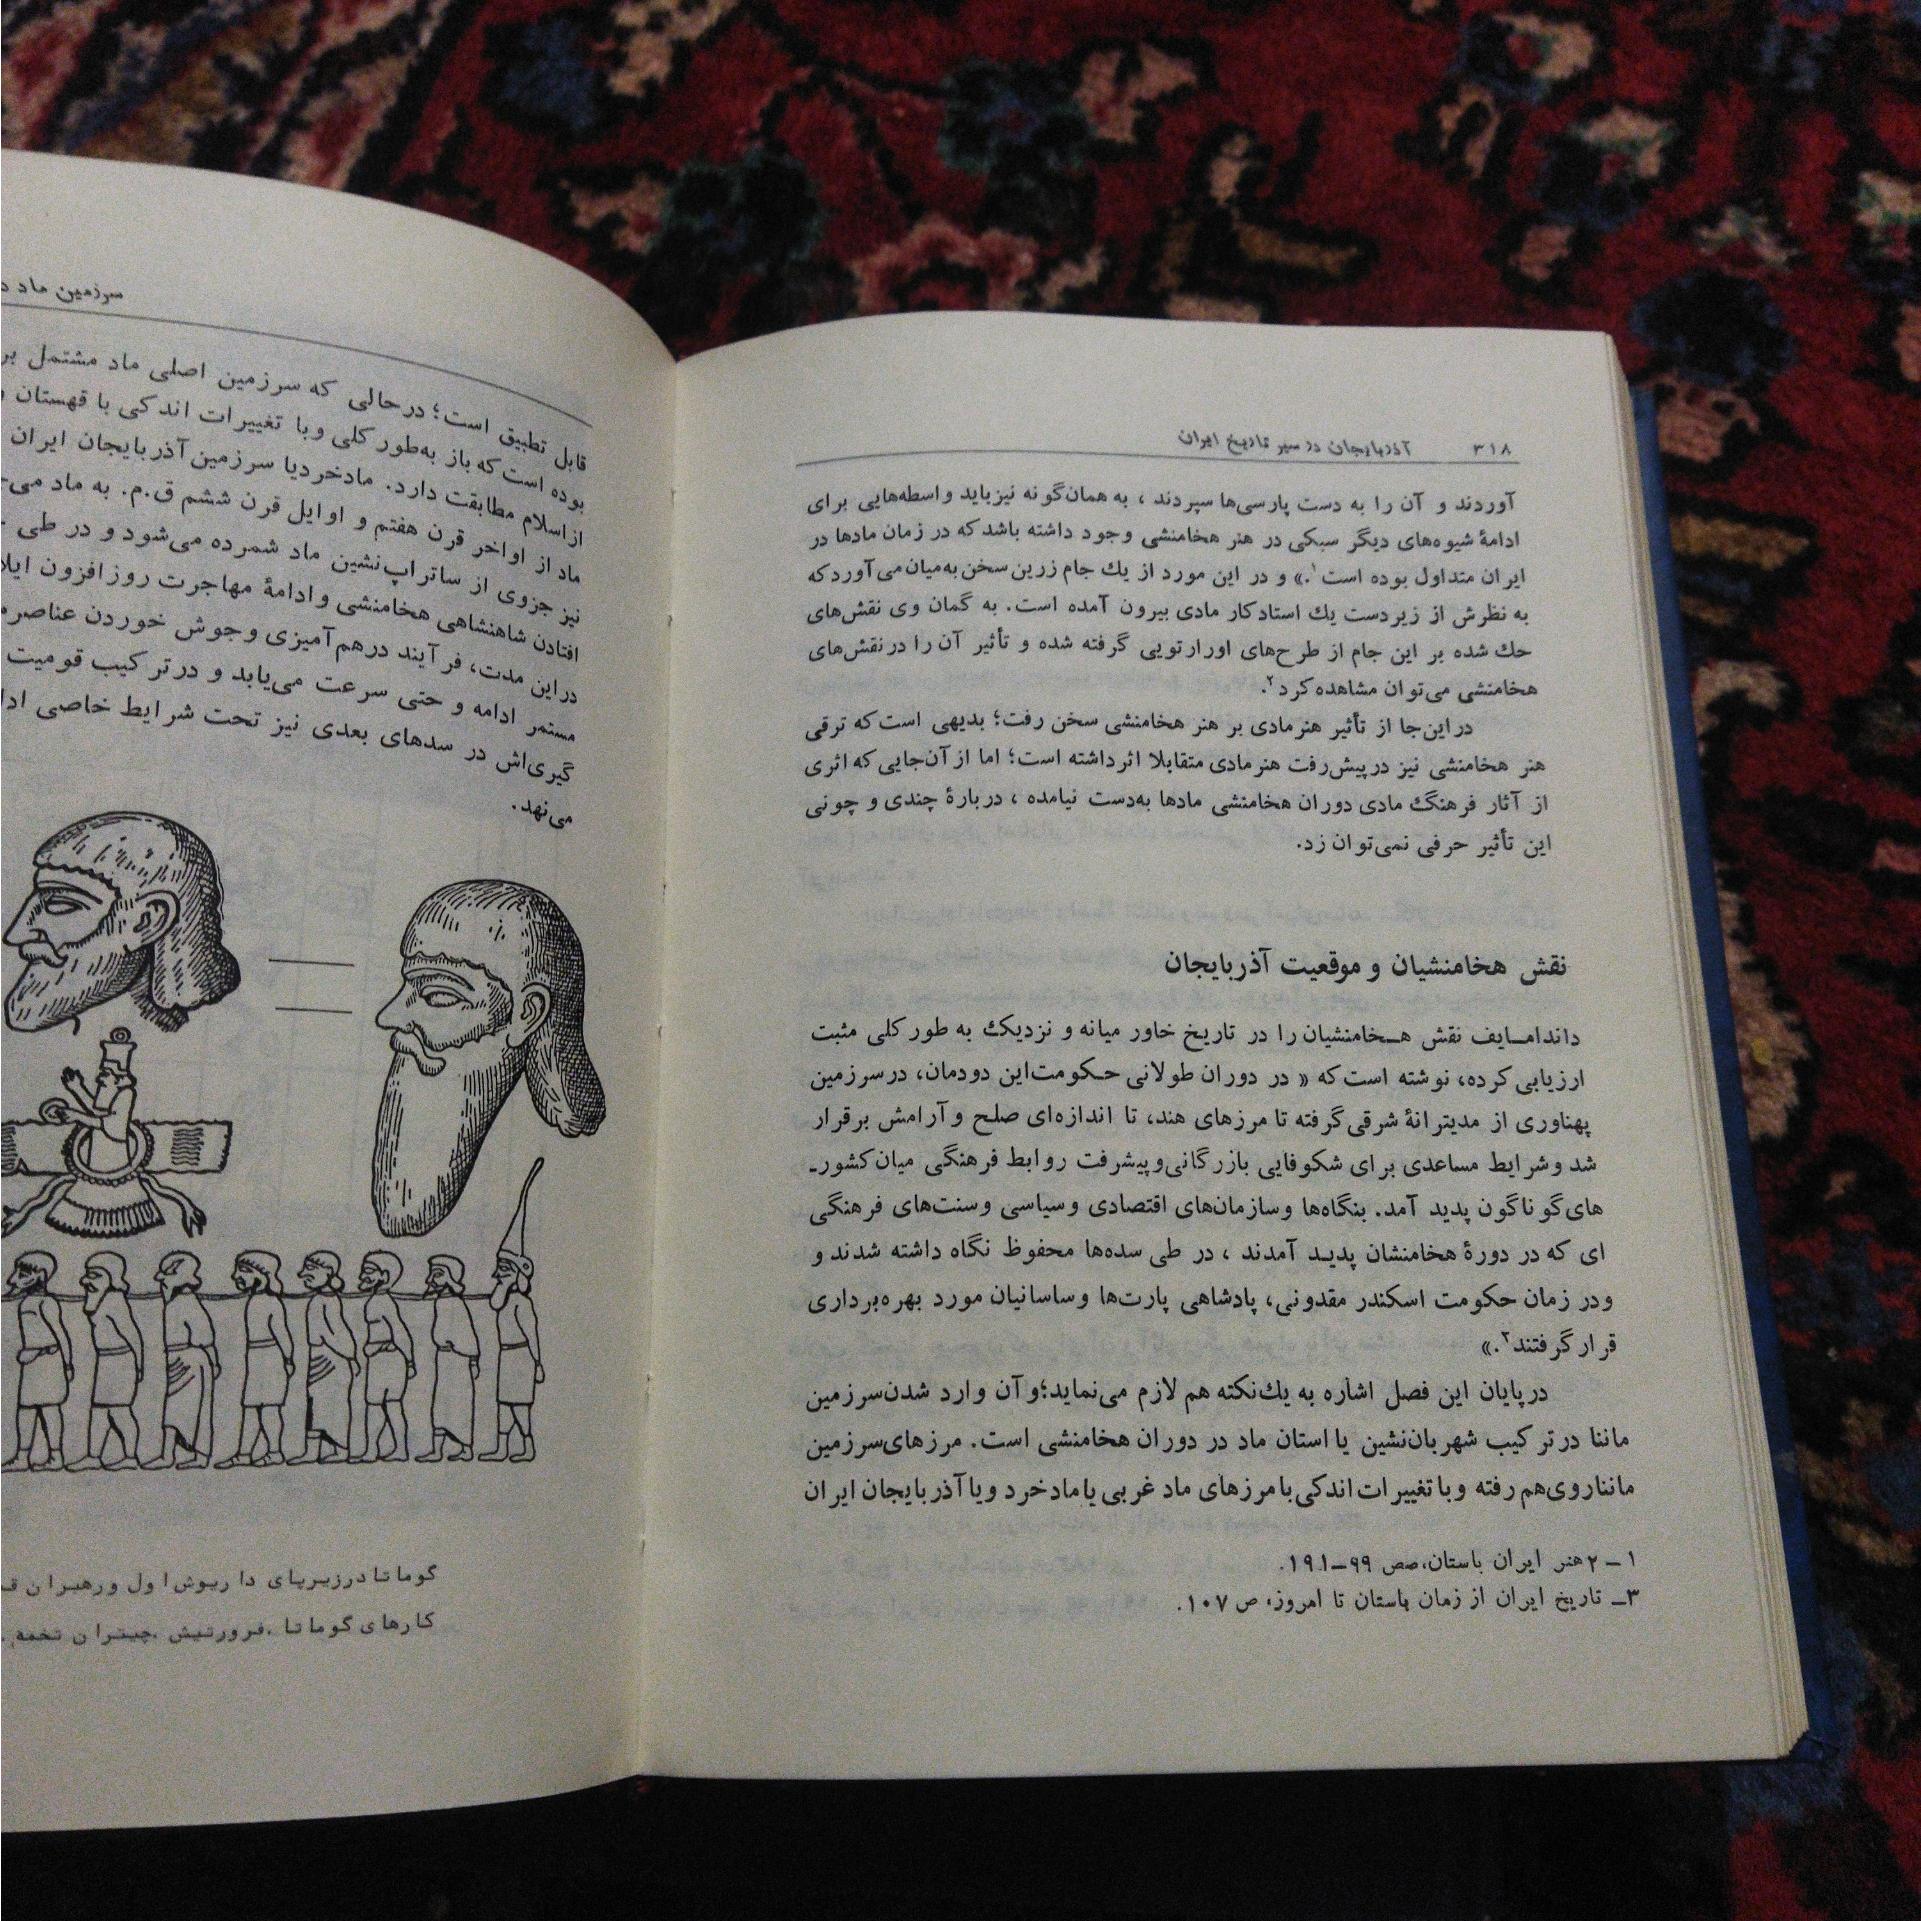 ۳۱۸ آذربایجان در سیر تاریخ ایران
آوردند و آن را به دست پارسی‌ها سپردند ، به همان‌گونه نیز باید واسطه‌هایی برای
ادامهٔ شیوه‌های دیگر سبکی در هنر هخامنشی وجود داشته باشد که در زمان مادها در
ایران متداول بوده است۱.» و در این مورد از یك جام زرین سخن به‌میان می‌آورد که
به نظرش از زیردست یك استادکار مادی بیرون آمده است. به گمان وی نقش‌های
حك شده بر این جام از طرح‌های اورارتویی گرفته شده و تأثیر آن را در نقش‌های
هخامنشی می‌توان مشاهده کرد۲.
در این‌جا از تأثیر هنر مادی بر هنر هخامنشی سخن رفت؛ بدیهی است که ترقی
هنر هخامنشی نیز در پیش‌رفت هنر مادی متقابلا اثر داشته است؛ اما از آن‌جایی که اثری
از آثار فرهنگ مادی دوران هخامنشی مادها به‌دست نیامده ، دربارهٔ چندی و چونی
این تأثیر حرفی نمی‌توان زد.
نقش هخامنشیان و موقعیت آذربایجان
داندامـایف نقش هـخامنشیان را در تاریخ خاور میانه و نزدیك به طور کلی مثبت
ارزیابی کرده، نوشته است که « در دوران طولانی حـکومت این دودمان، در سرزمین
پهناوری از مدیترانهٔ شرقی گرفته تا مرزهای هند، تا اندازه‌ای صلح و آرامش برقرار
شد و شرایط مساعدی برای شکوفایی بازرگانی و پیشرفت روابط فرهنگی میان کشورـ
های گوناگون پدید آمد. بنگاه‌ها و سازمان‌های اقتصادی و سیاسی و سنت‌های فرهنگی
ای که در دورهٔ هخامنشان پدیـد آمدند ، در طی سده‌ها محفوظ نگاه داشته شدند و
و در زمان حکومت اسکندر مقدونی، پادشاهی پارت‌ها و ساسانیان مورد بهره‌برداری
قرار گرفتند۳.»
در پایان این فصل اشاره به یك نکته هم لازم می‌نماید؛ و آن وارد شدن سرزمین
ماننا در ترکیب شهربان‌نشین یا استان ماد در دوران هخامنشی است. مرزهای سرزمین
ماننا روی‌هم رفته و با تغییرات اندکی با مرزهای ماد غربی یا ماد خرد و یا آذربایجان ایران
۱ ـ ۲ هنر ایران باستان، صص ۹۹ـ۱۹۱.
۳ـ تاریخ ایران از زمان باستان تا امروز، ص ۱۰۷.
سرزمین ماد
قابل تطبیق است؛ درحالی که سرزمین اصلی ماد مشتمل بر
بوده است که باز به‌طور کلی و با تغییرات اندکی با قهستان
از اسلام مطابقت دارد. ماد خرد یا سرزمین آذربایجان ایران
ماد از اواخر قرن هفتم و اوایل قرن ششم ق.م. به ماد می‌ـ
نیز جزوی از ساتراپ‌نشین ماد شمرده می‌شود و در طی
افتادن شاهنشاهی هخامنشی و ادامهٔ مهاجرت روزافزون
در این مدت، فرآیند درهم‌آمیزی و جوش خوردن
مستمر ادامه و حتی سرعت می‌یابد و در ترکیب قومیت
گیری‌اش در سدهای بعدی نیز تحت شرایط خاصی
می‌نهد.
گوماتا در زیر پای داریوش اول و رهبران
کارهای گوماتا .فرورتیش .چیتران تخمه .